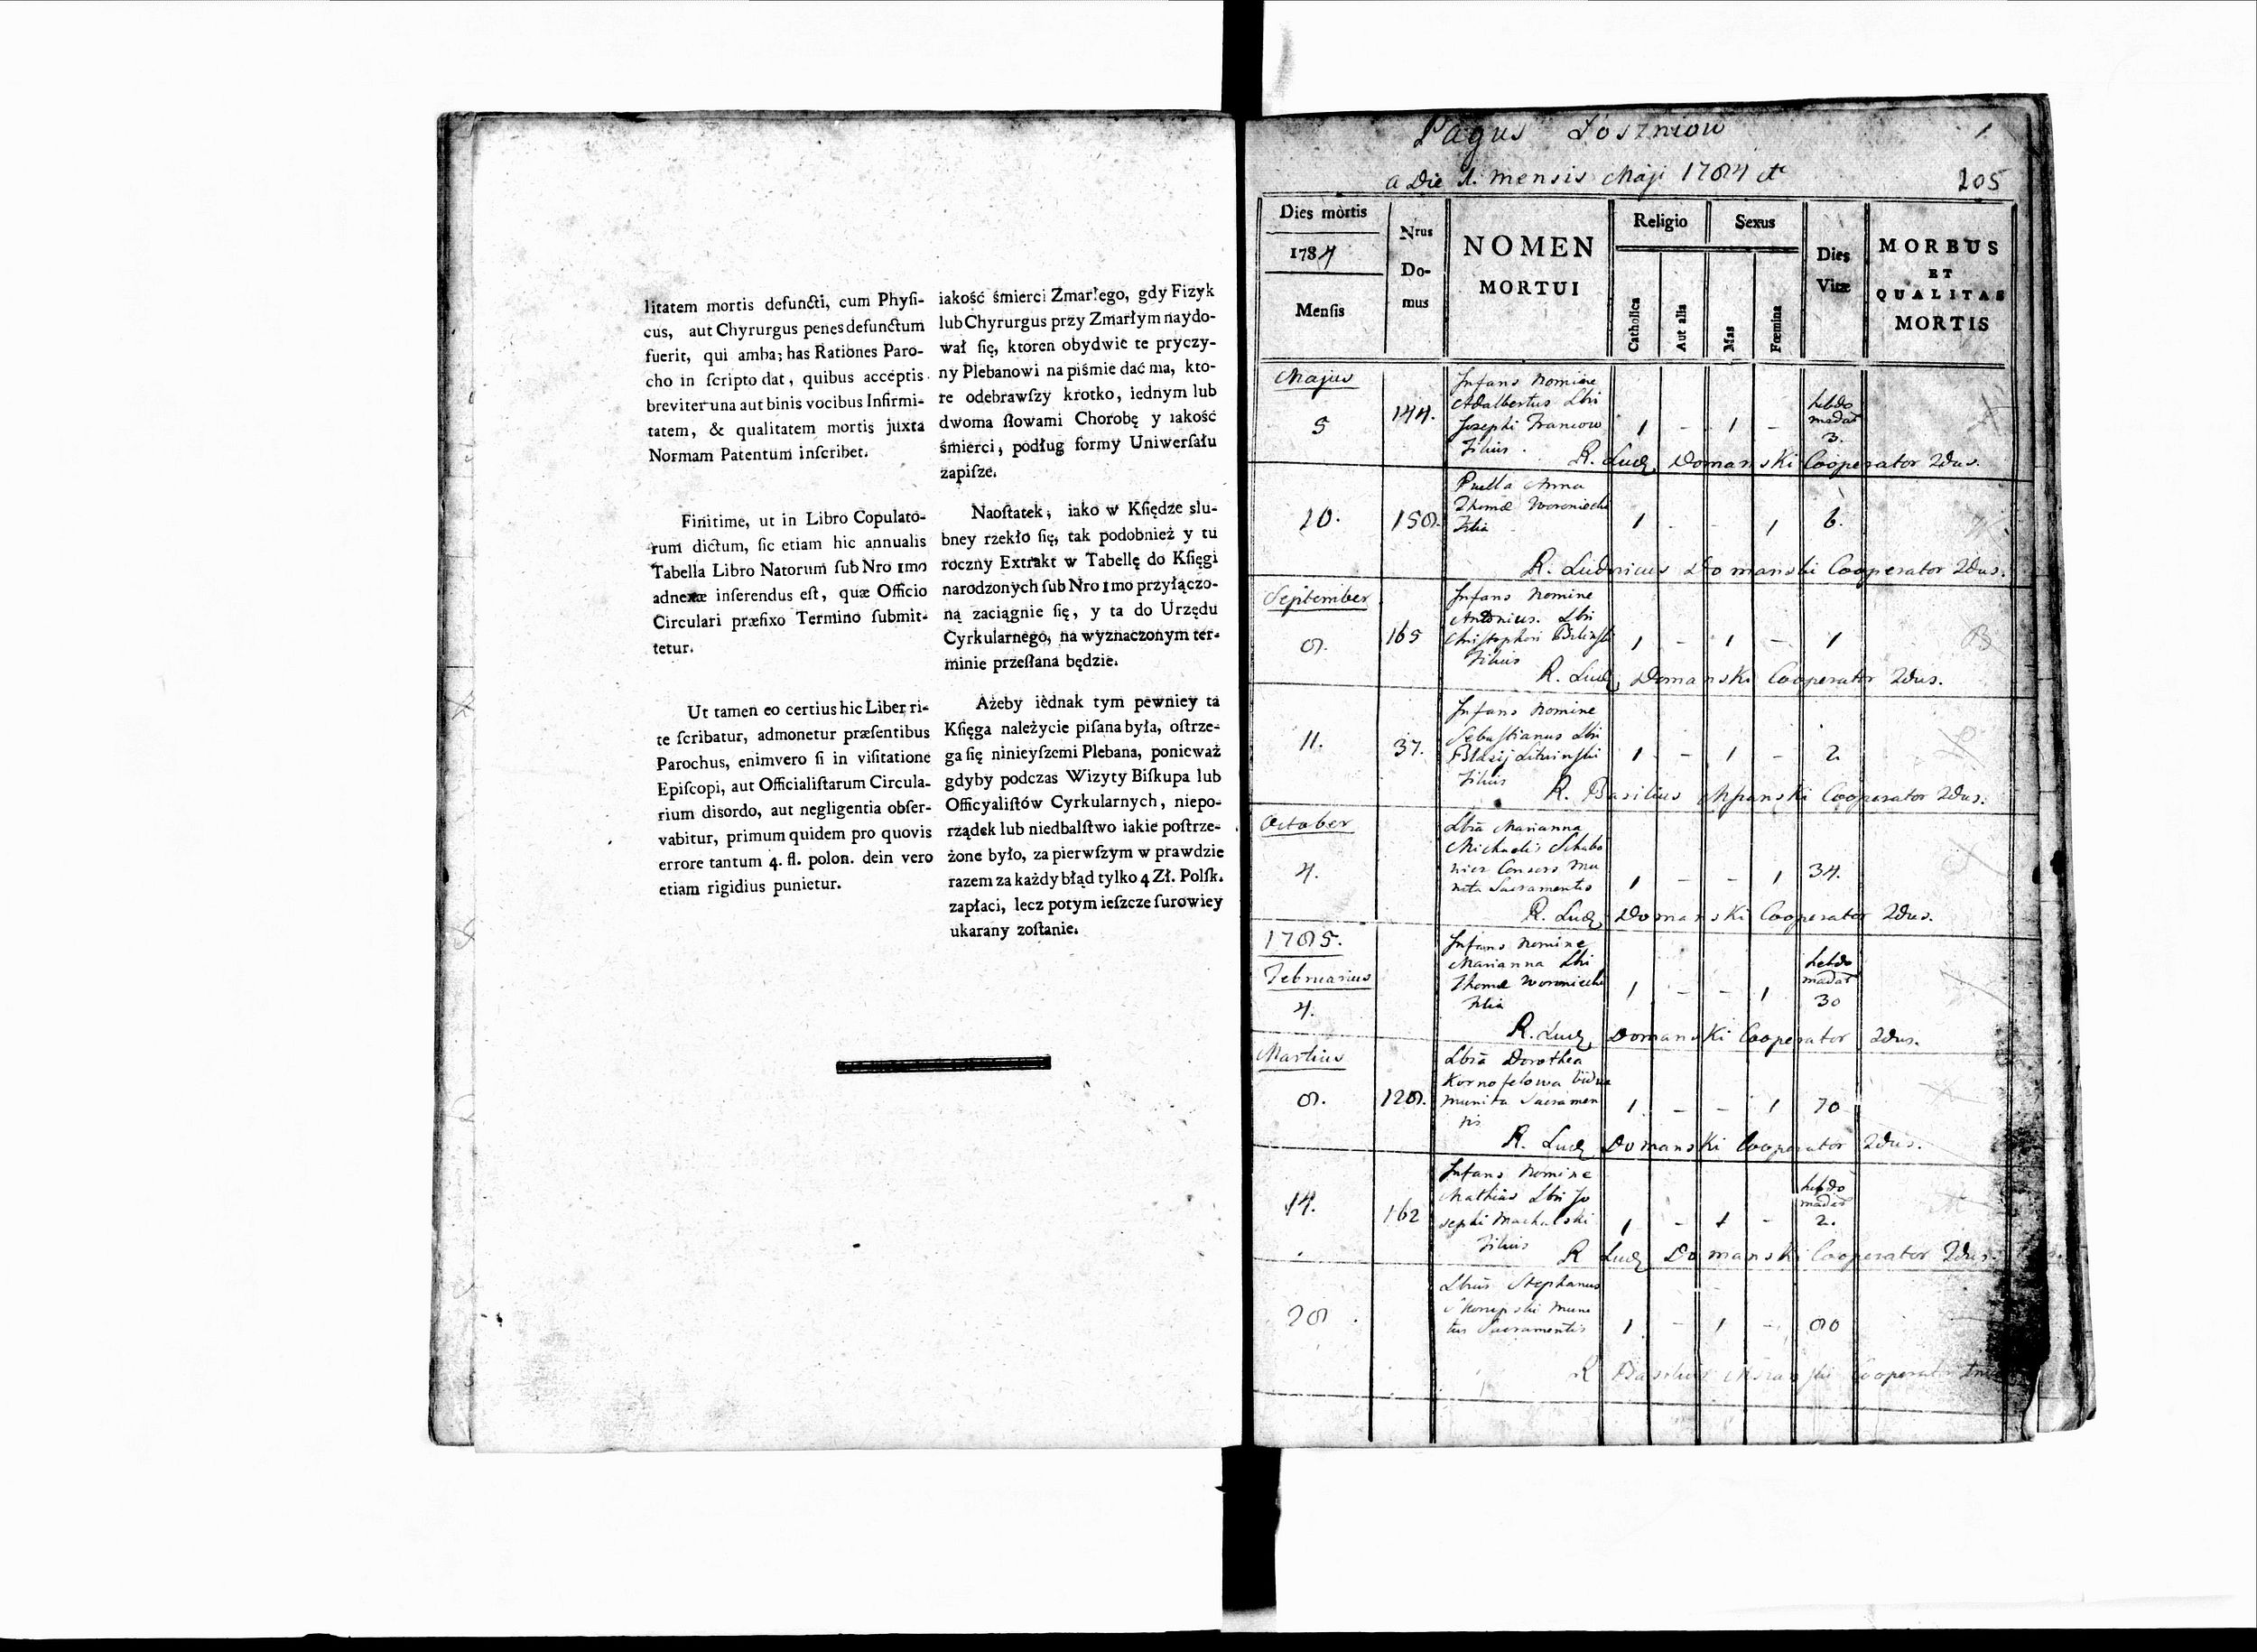 litatem mortis defuncti, cum Phyſi-
cus, aut Chyrurgus penes defunctum
fuerit, qui amba; has Rationes Paro-
cho in ſcripto dat, quibus acceptis
breviter una aut binis vocibus Infirmi-
tatem, & qualitatem mortis juxta
Normam Patentum inſcribet.
Finitime, ut in Libro Copulato-
rum dictum, ſic etiam hic annualis
Tabella Libro Natorum ſub Nro 1mo
adnexæ inſerendus eſt, quæ Officio
Circulari præfixo Termino ſubmit-
tetur.
Ut tamen eo certius hic Liber ri-
te ſcribatur, admonetur præſentibus
Parochus, enimvero ſi in viſitatione
Epiſcopi, aut Officialiſtarum Circula-
rium disordo, aut negligentia obſer-
vabitur, primum quidem pro quovis
errore tantum 4. fl. polon. dein vero
etiam rigidius punietur.
iakość śmierci Zmarłego, gdy Fizyk
lub Chyrurgus przy Zmarłym naydo-
wał ſię, ktoren obydwie te pryczy-
ny Plebanowi na piśmie dać ma, kto-
re odebrawſzy krotko, iednym lub
dwoma ſłowami Chorobę y iakość
śmierci, podług formy Uniwerſału
zapiſze.
Naoſtatek, iako w Kſiędze slu-
bney rzekło ſię, tak podobnież y tu
roczny Extrakt w Tabellę do Kſięgi
narodzonych ſub Nro 1mo przyłączo-
ną zaciągnie ſię, y ta do Urzędu
Cyrkularnego, na wyznaczonym ter-
minie przeſłana będzie.
Ażeby iednak tym pewniey ta
Kſięga należycie piſana była, oſtrze-
ga ſię ninieyſzemi Plebana, ponieważ
gdyby podczas Wizyty Biſkupa lub
Officyaliſtów Cyrkularnych, niepo-
rządek lub niedbalſtwo iakie poſtrze-
żone było, za pierwſzym w prawdzie
razem za każdy błąd tylko 4 Zł. Polſk.
zapłaci, lecz potym ieſzcze ſurowiey
ukarany zoſtanie.
Pagus Łoszniow 1
a Die 1. mensis Maji 1784 205
Dies mortis
1784
Menſis
Nrus
Do-
mus
NOMEN
MORTUI
Religio
Catholica
Aut alia
Sexus
Mas
Fœmina
Dies
Vitæ
MORBUS
ET
QUALITAS
MORTIS
Majus
5 144.
Infans Nomine
Adalbertus Lbri
Josephi Francow
Filius
1 - 1 -
hebdo
madar
3.
R. Lud. Domanski Cooperator 2dus.
10. 158.
Puella Anna
Thomæ Woroniecki
Filia
1 - - 1 6.
R. Ludovicus Domanski Cooperator 2dus.
September
8. 165
Infans Nomine
Antonius Lbri
Christophori
Filius
1 - 1 - 1
R. Lud. Domanski Cooperator 2dus.
11. 37.
Infans Nomine
Sebastianus Lbri
Blasij Litwinski
Filius
1 - 1 - 2
R. Basilius Cooperator 2dus.
October
4.
Lbra Marianna
Michaelis
Consors Mu
nita Sacramentis
1 - - 1 34.
R. Lud. Domanski Cooperator 2dus.
1785.
Februarius
4.
Infans Nomine
Marianna Lbri
Thomæ Woroniecki
Filia
1 - - 1
hebdo
madar
30
R. Lud. Domanski Cooperator 2dus.
Martius
8. 128.
Lbra Dorothea
Kornofelowa Vidua
munita Sacramen
tis
1 - - 1 70
R. Lud. Domanski Cooperator 2dus.
14. 162
Infans Nomine
Mathias Lbri Jo
sephi Machalski
Filius
1 - 1 -
hebdo
madar
2.
R Lud. Domanski Cooperator 2dus.
28
Lbrus Stephanus
Muni
tus Sacramentis
1 - 1 - 80
R Basilius Cooperator